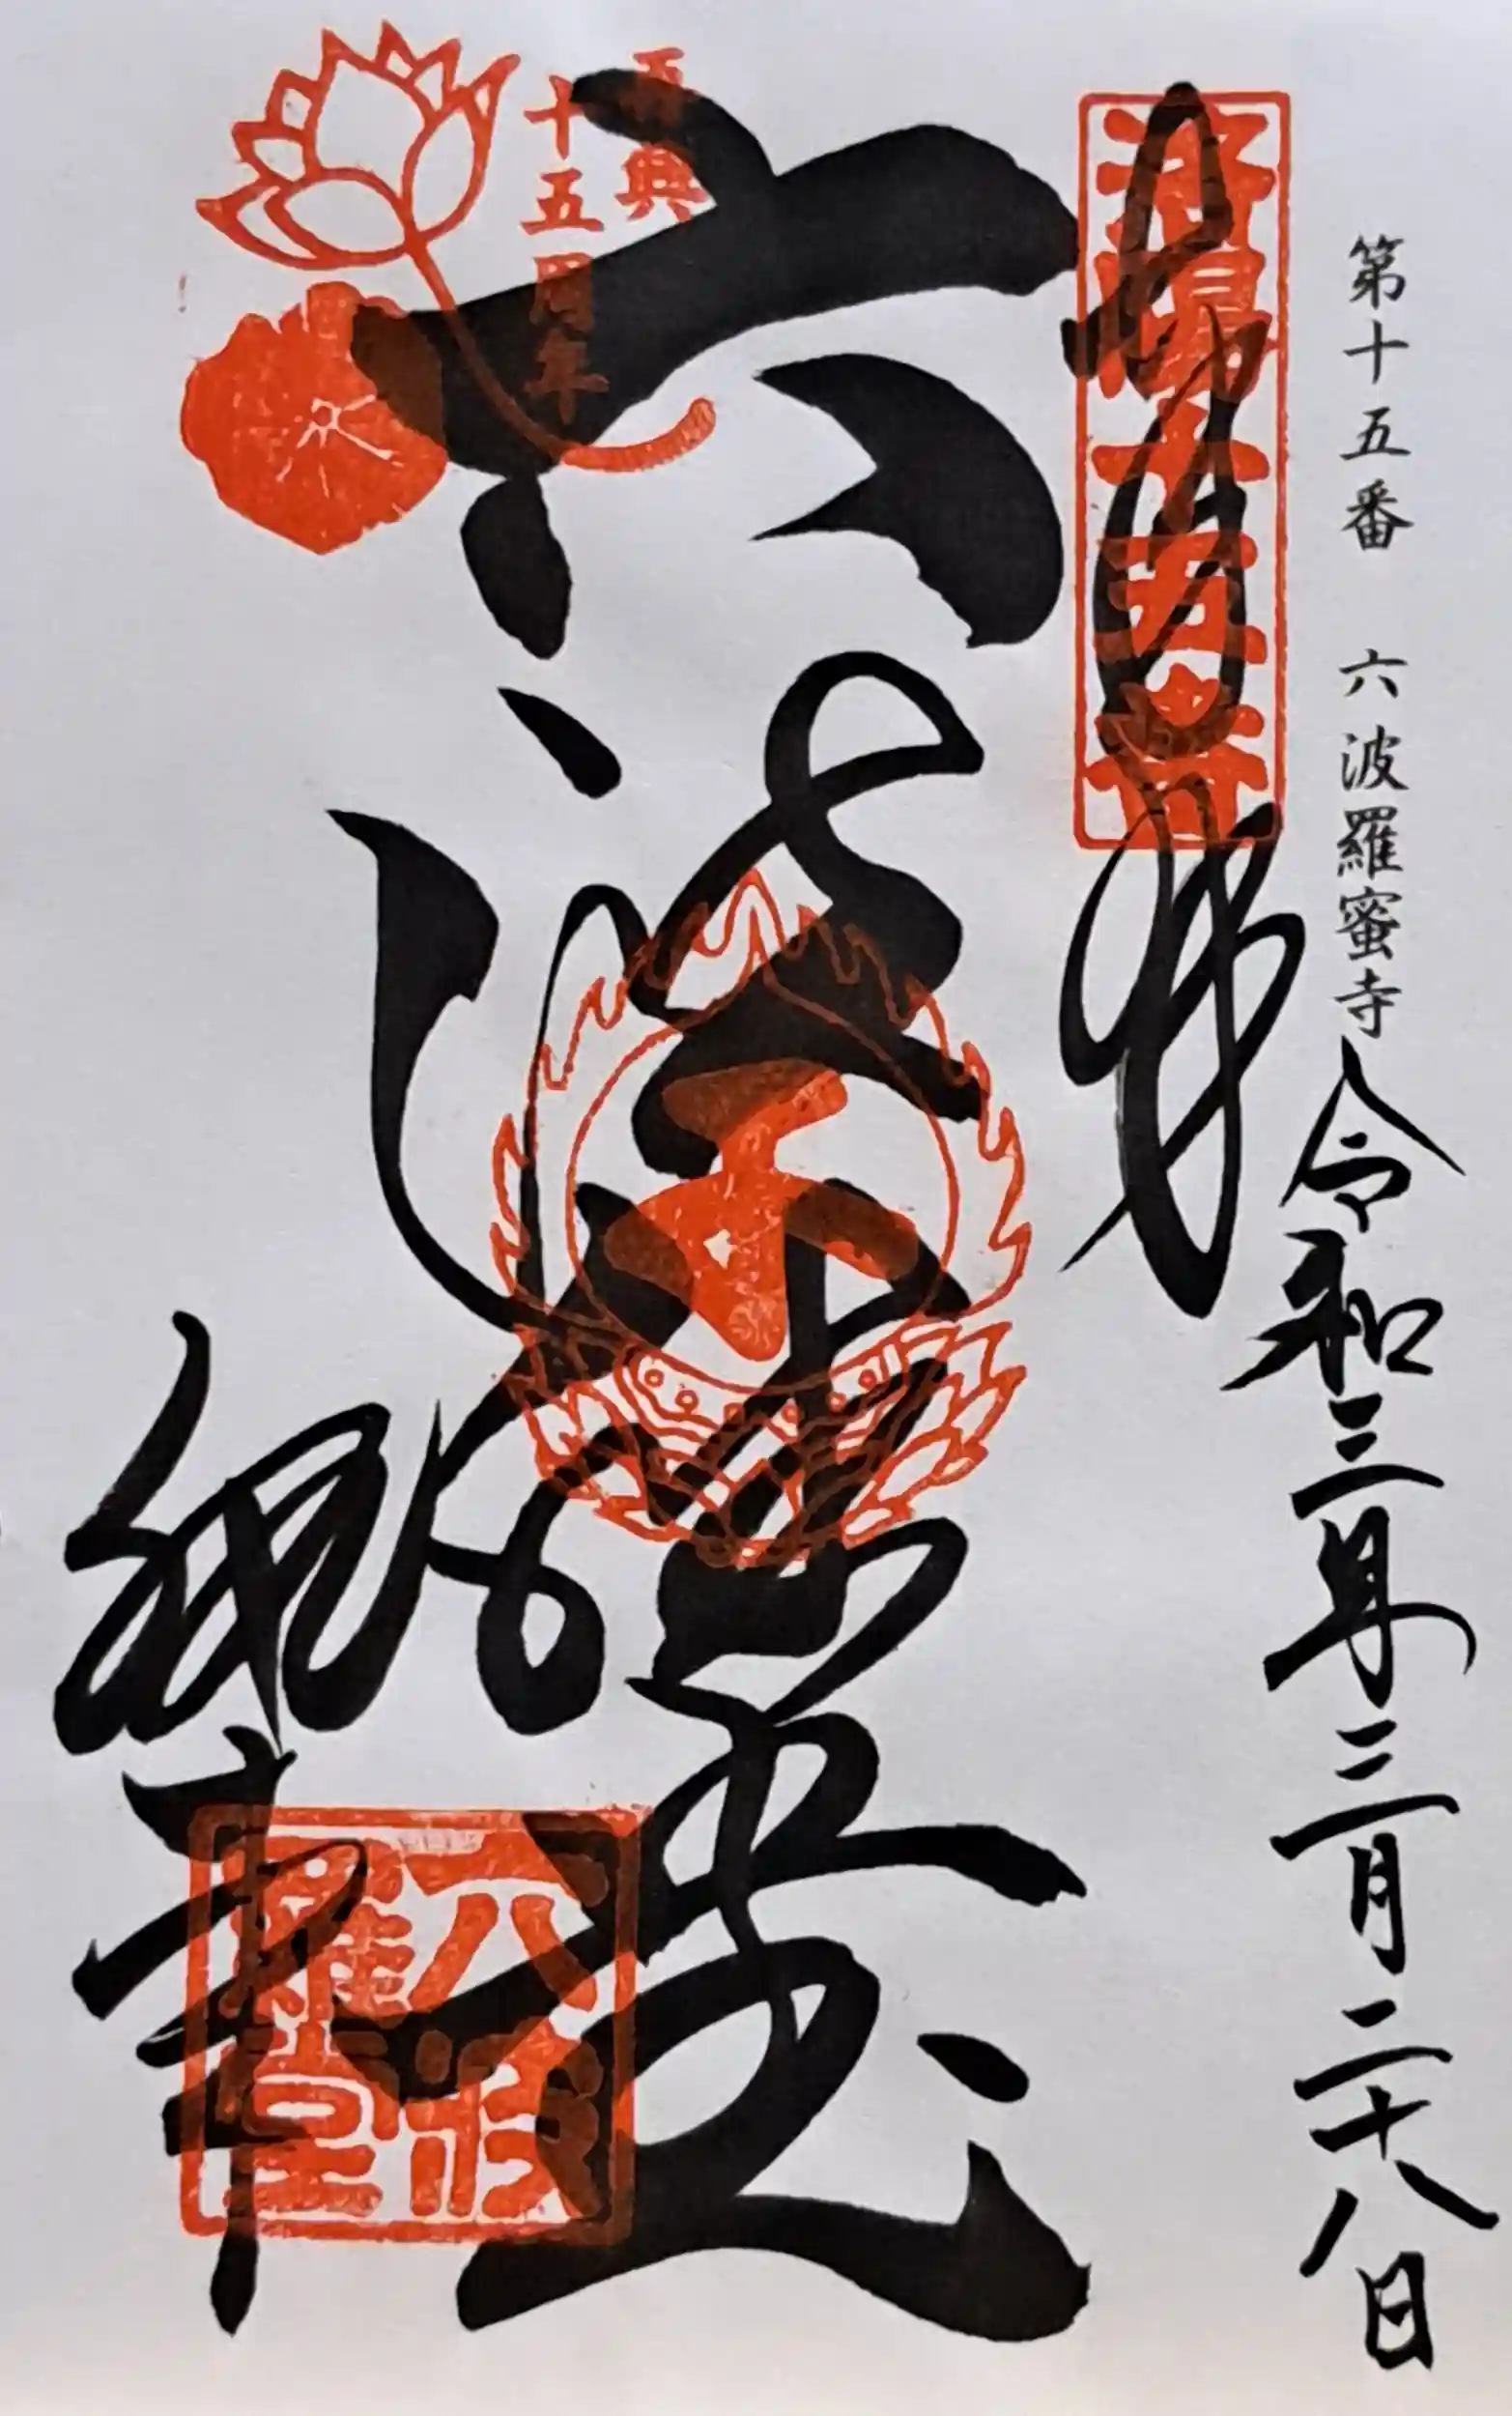 第十五番 六波羅蜜寺
令和三年三月二十八日
洛陽十五番
再興
十五周年
六波羅堂
六波
羅堂